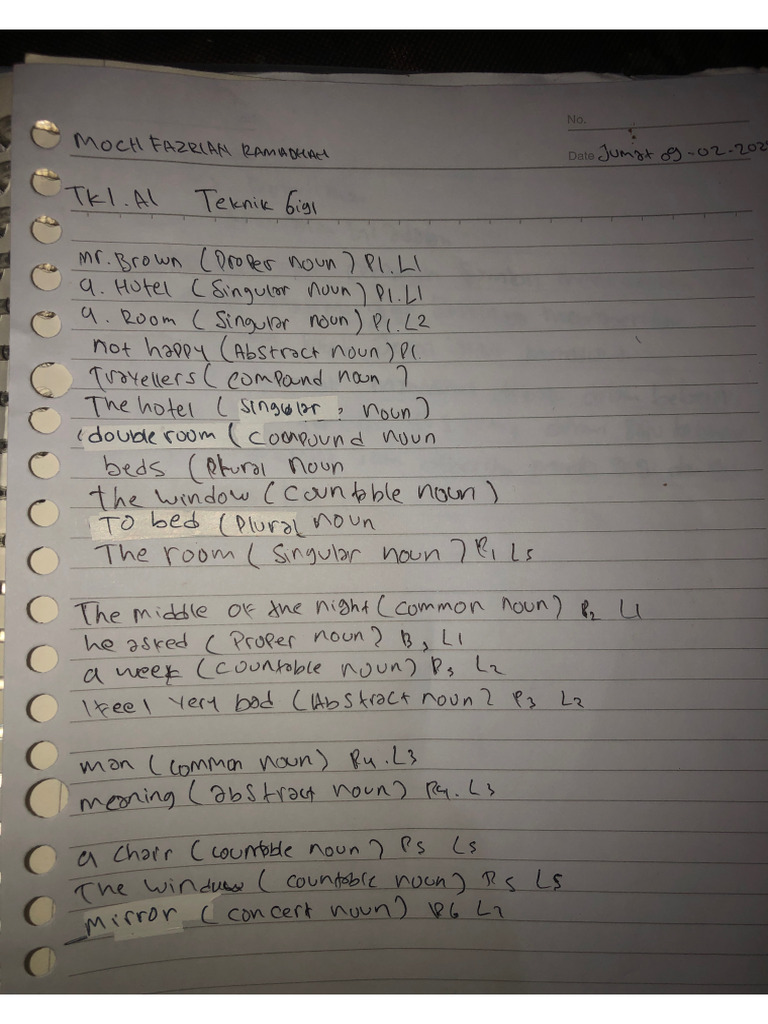 No.
MOCH FAZRIAN RAMADHAN
Date Jumat 09-02-202
TK1.A1 Teknik Gigi
Mr. Brown (Proper noun) P1.L1
a. Hotel (Singular noun) P1.L1
a. Room (Singular noun) P1.L2
not happy (Abstract noun) P1
Travellers (compound noun)
The hotel (singular, noun)
double room (Compound noun
beds (Plural noun
the window (Countable noun)
TO bed (Plural noun
The room (Singular noun) P1 L5
The middle of the night (common noun) P2 L1
he asked (Proper noun) L1
a week (countable noun) P3 L2
I feel very bad (Abstract noun) P3 L2
man (common noun) P4.L3
meaning (abstract noun) P4.L3
a chair (countable noun) P5 L5
The window (countable noun) P5 L5
mirror (concert noun) P6 L2